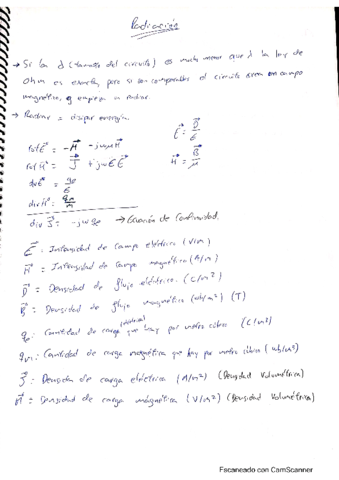 Radiación
→ Si la d (tamaño del circuito) es mucho menor que λ la ley de
Ohm es exacta, pero si son comparables el circuito crea un campo
magnético, y empieza a radiar
→ Radiar = disipar energía.
rot E⃗ = -M⃗ - jωμH⃗
E⃗ = D⃗/ε
rot H⃗ = J⃗ + jωε E⃗
H⃗ = B⃗/μ
div E⃗ = qe/ε
div H⃗ = qm/μ
div J⃗ = -jω qe → Ecuación de Continuidad.
E⃗: Intensidad de campo eléctrico (V/m)
H⃗ = Intensidad de campo magnético (A/m)
D⃗ = Densidad de flujo eléctrico. (C/m²)
B⃗ = Densidad de flujo magnético (wb/m²) (T)
qe: Cantidad de carga que hay por metro cúbico (C/m³)
qm: Cantidad de carga magnética que hay por metro cúbico (wb/m³)
J⃗ = Densidad de carga eléctrica (A/m²) (Densidad Volumétrica)
M⃗ = Densidad de carga magnética (V/m²) (Densidad Volumétrica)
Escaneado con CamScanner